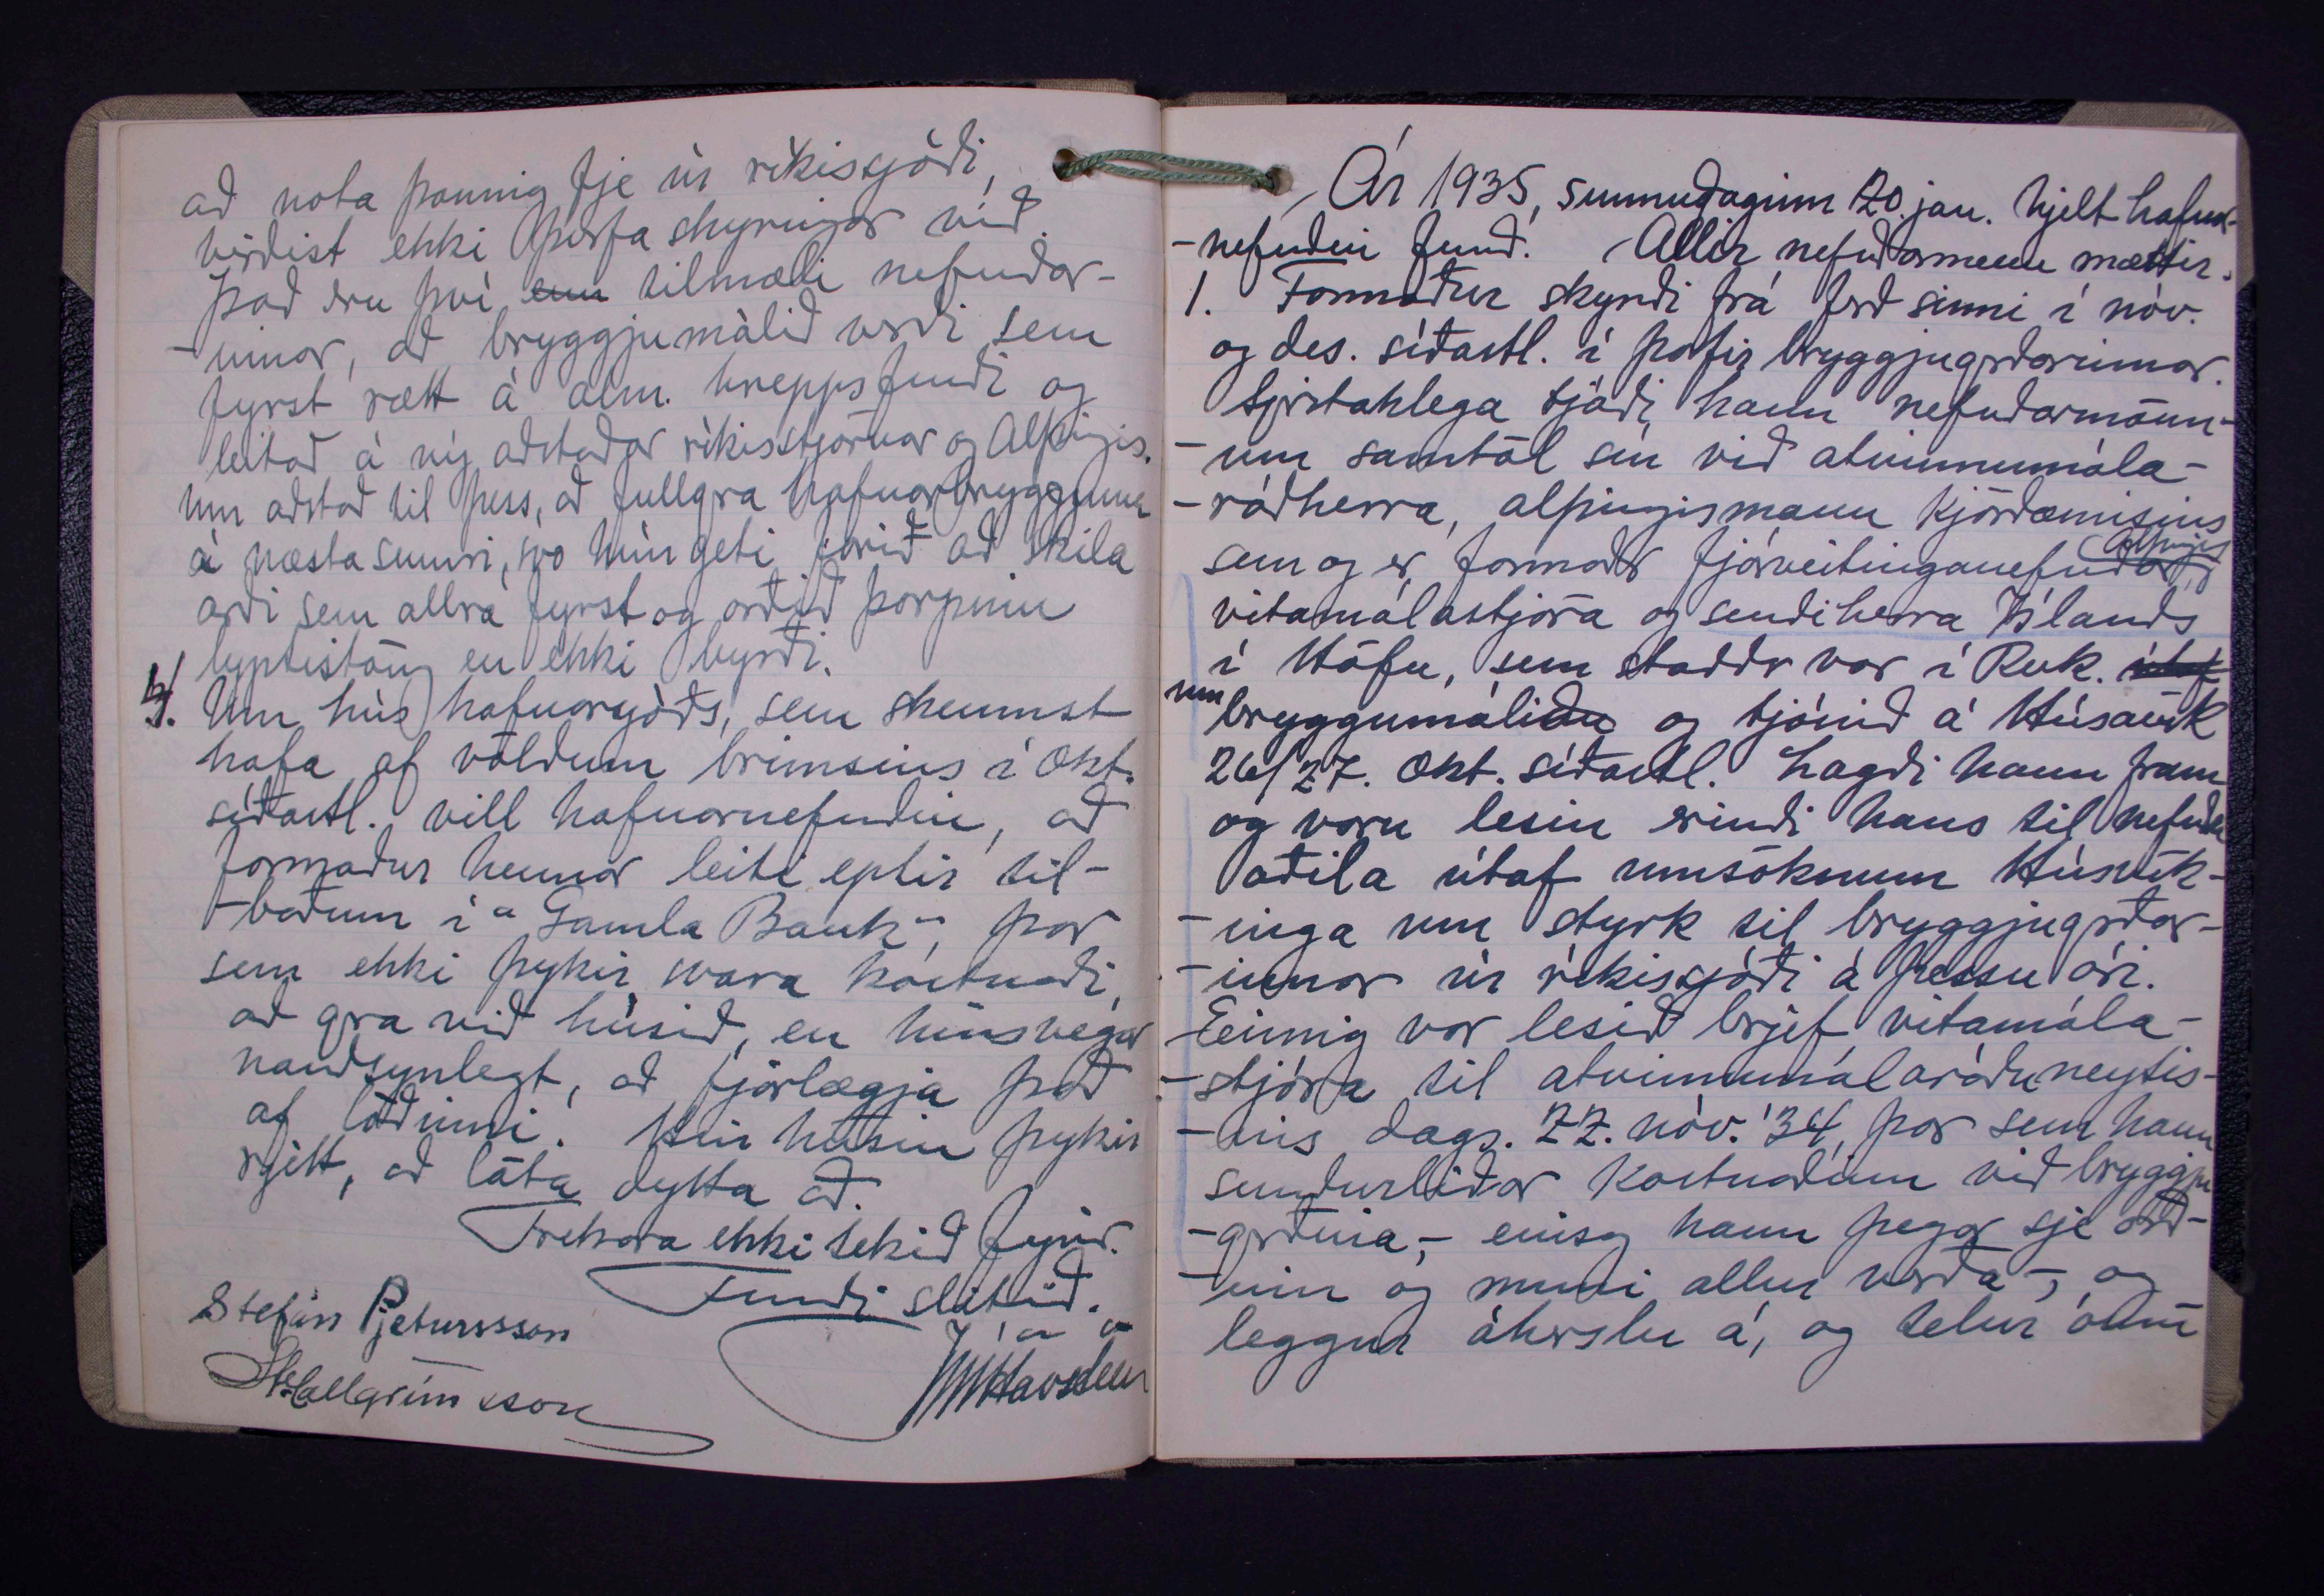 að nota þannig fje úr ríkissjóði,
virðist ekki þurfa skýringar við.
Það eru því enn tilmæli nefndar-
-innar, að bryggjumálið verði sem
fyrst rætt á alm. hreppsfundi og
leitað á ný aðstoðar ríkisstjórnar og Alþingis.
um aðstoð til þess, að fullgera hafnarbryggjuna
á næsta sumri, svo hún geti farið að skila
arði sem allra fyrst og orðið þorpinu
lyptistöng en ekki byrði.
4. Um hús hafnarsjóðs, sem skemmst
hafa af völdum brimsins í Okt.
síðastl. vill hafnarnefndin, að
formaður hennar leiti eptir til-
-boðum í "Gamla Bauk", þar
sem ekki þykir svara kostnaði,
að gera við húsið, en hinsvegar
nauðsynlegt, að fjarlægja það
af lóðinni. Hin húsin þykir
rjett, að láta dytta að.
Frekara ekki tekið fyrir.
Fundi slitið.
Stefán Pjetursson
JúlHavsteen
StHallgrímsson
Ár 1935, sunnudaginn 20. jan. hjelt hafnar-
-nefndin fund. Allir nefndarmenn mættir.
1. Formaður skýrði frá ferð sinni í nóv.
og des. síðastl. í þarfir bryggjugerðarinnar.
Sjerstaklega tjáði hann nefndarmönn-
-um samtöl sín við atvinnumála-
-ráðherra, alþingismann kjördæmisins
sem og er formaðr fjárveitinganefndar Alþingis,
vitamálastjóra og sendiherra Íslands
í Höfn, sem staddr var í Rvk. útaf
um bryggjumálið og tjónið á Húsavík
26/27. Okt. síðastl. Lagði hann fram
og voru lesin erindi hans til nefndra
aðila útaf umsóknum Húsvík-
-inga um styrk til bryggjugerðar-
-innar úr ríkissjóði á þessu ári.
Einnig var lesið brjef vitamála-
-stjóra til atvinnumálaráðuneytis-
-ins dags. 22. nóv. '34, þar sem hann
sundurliðar kostnaðinn við bryggju
-gerðina, - einsog hann þegar sje orð-
-inn og muni allur verða -, og
leggur áherslu á, og telur